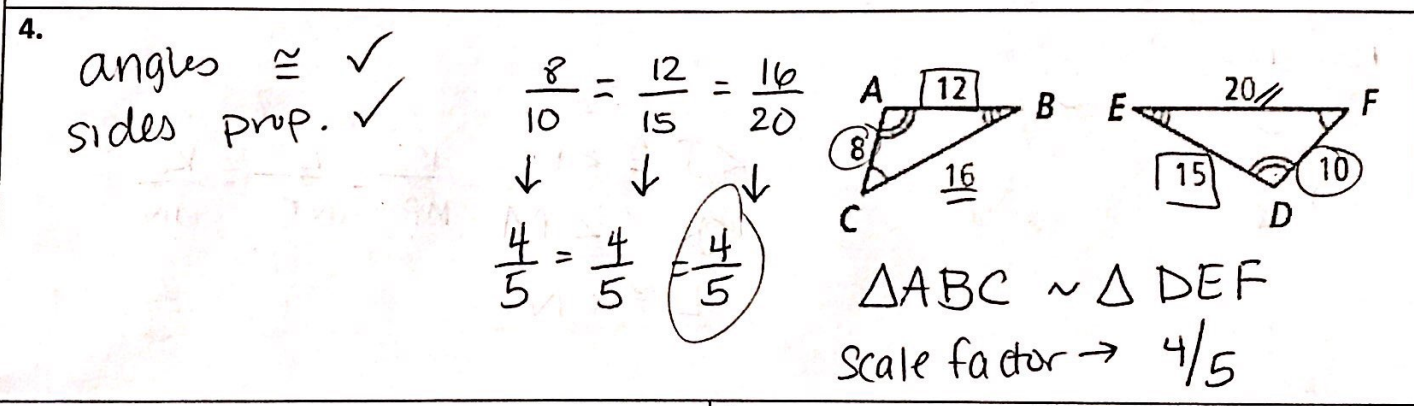 4.
angles ≅ ✓
sides prop. ✓
8/10 = 12/15 = 16/20
↓ ↓ ↓
4/5 = 4/5 = 4/5
A 12 B
8
16
C
E 20 F
15 10
D
△ABC ~ △DEF
Scale factor → 4/5